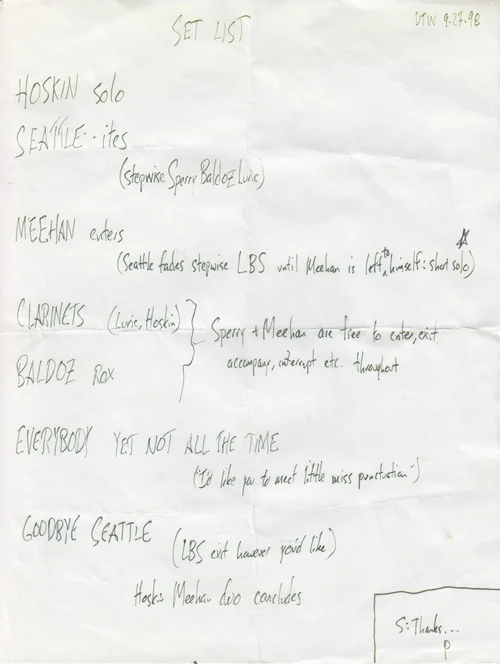 SET LIST
DTW 9.27.98
HOSKIN solo
SEATTLE-ites
(stepwise Sperry Baldoz Lurie)
MEEHAN enters
(Seattle fades stepwise LBS until Meehan is left to himself: short solo)
CLARINETS (Lurie, Hoskin)
Sperry + Meehan are free to enter, exit
accompany, interrupt etc. throughout
BALDOZ ROX
EVERYBODY YET NOT ALL THE TIME
("I'd like you to meet little miss punctuation")
GOODBYE SEATTLE
(LBS exit however you'd like)
Hoskin Meehan duo concludes
S: Thanks...
P